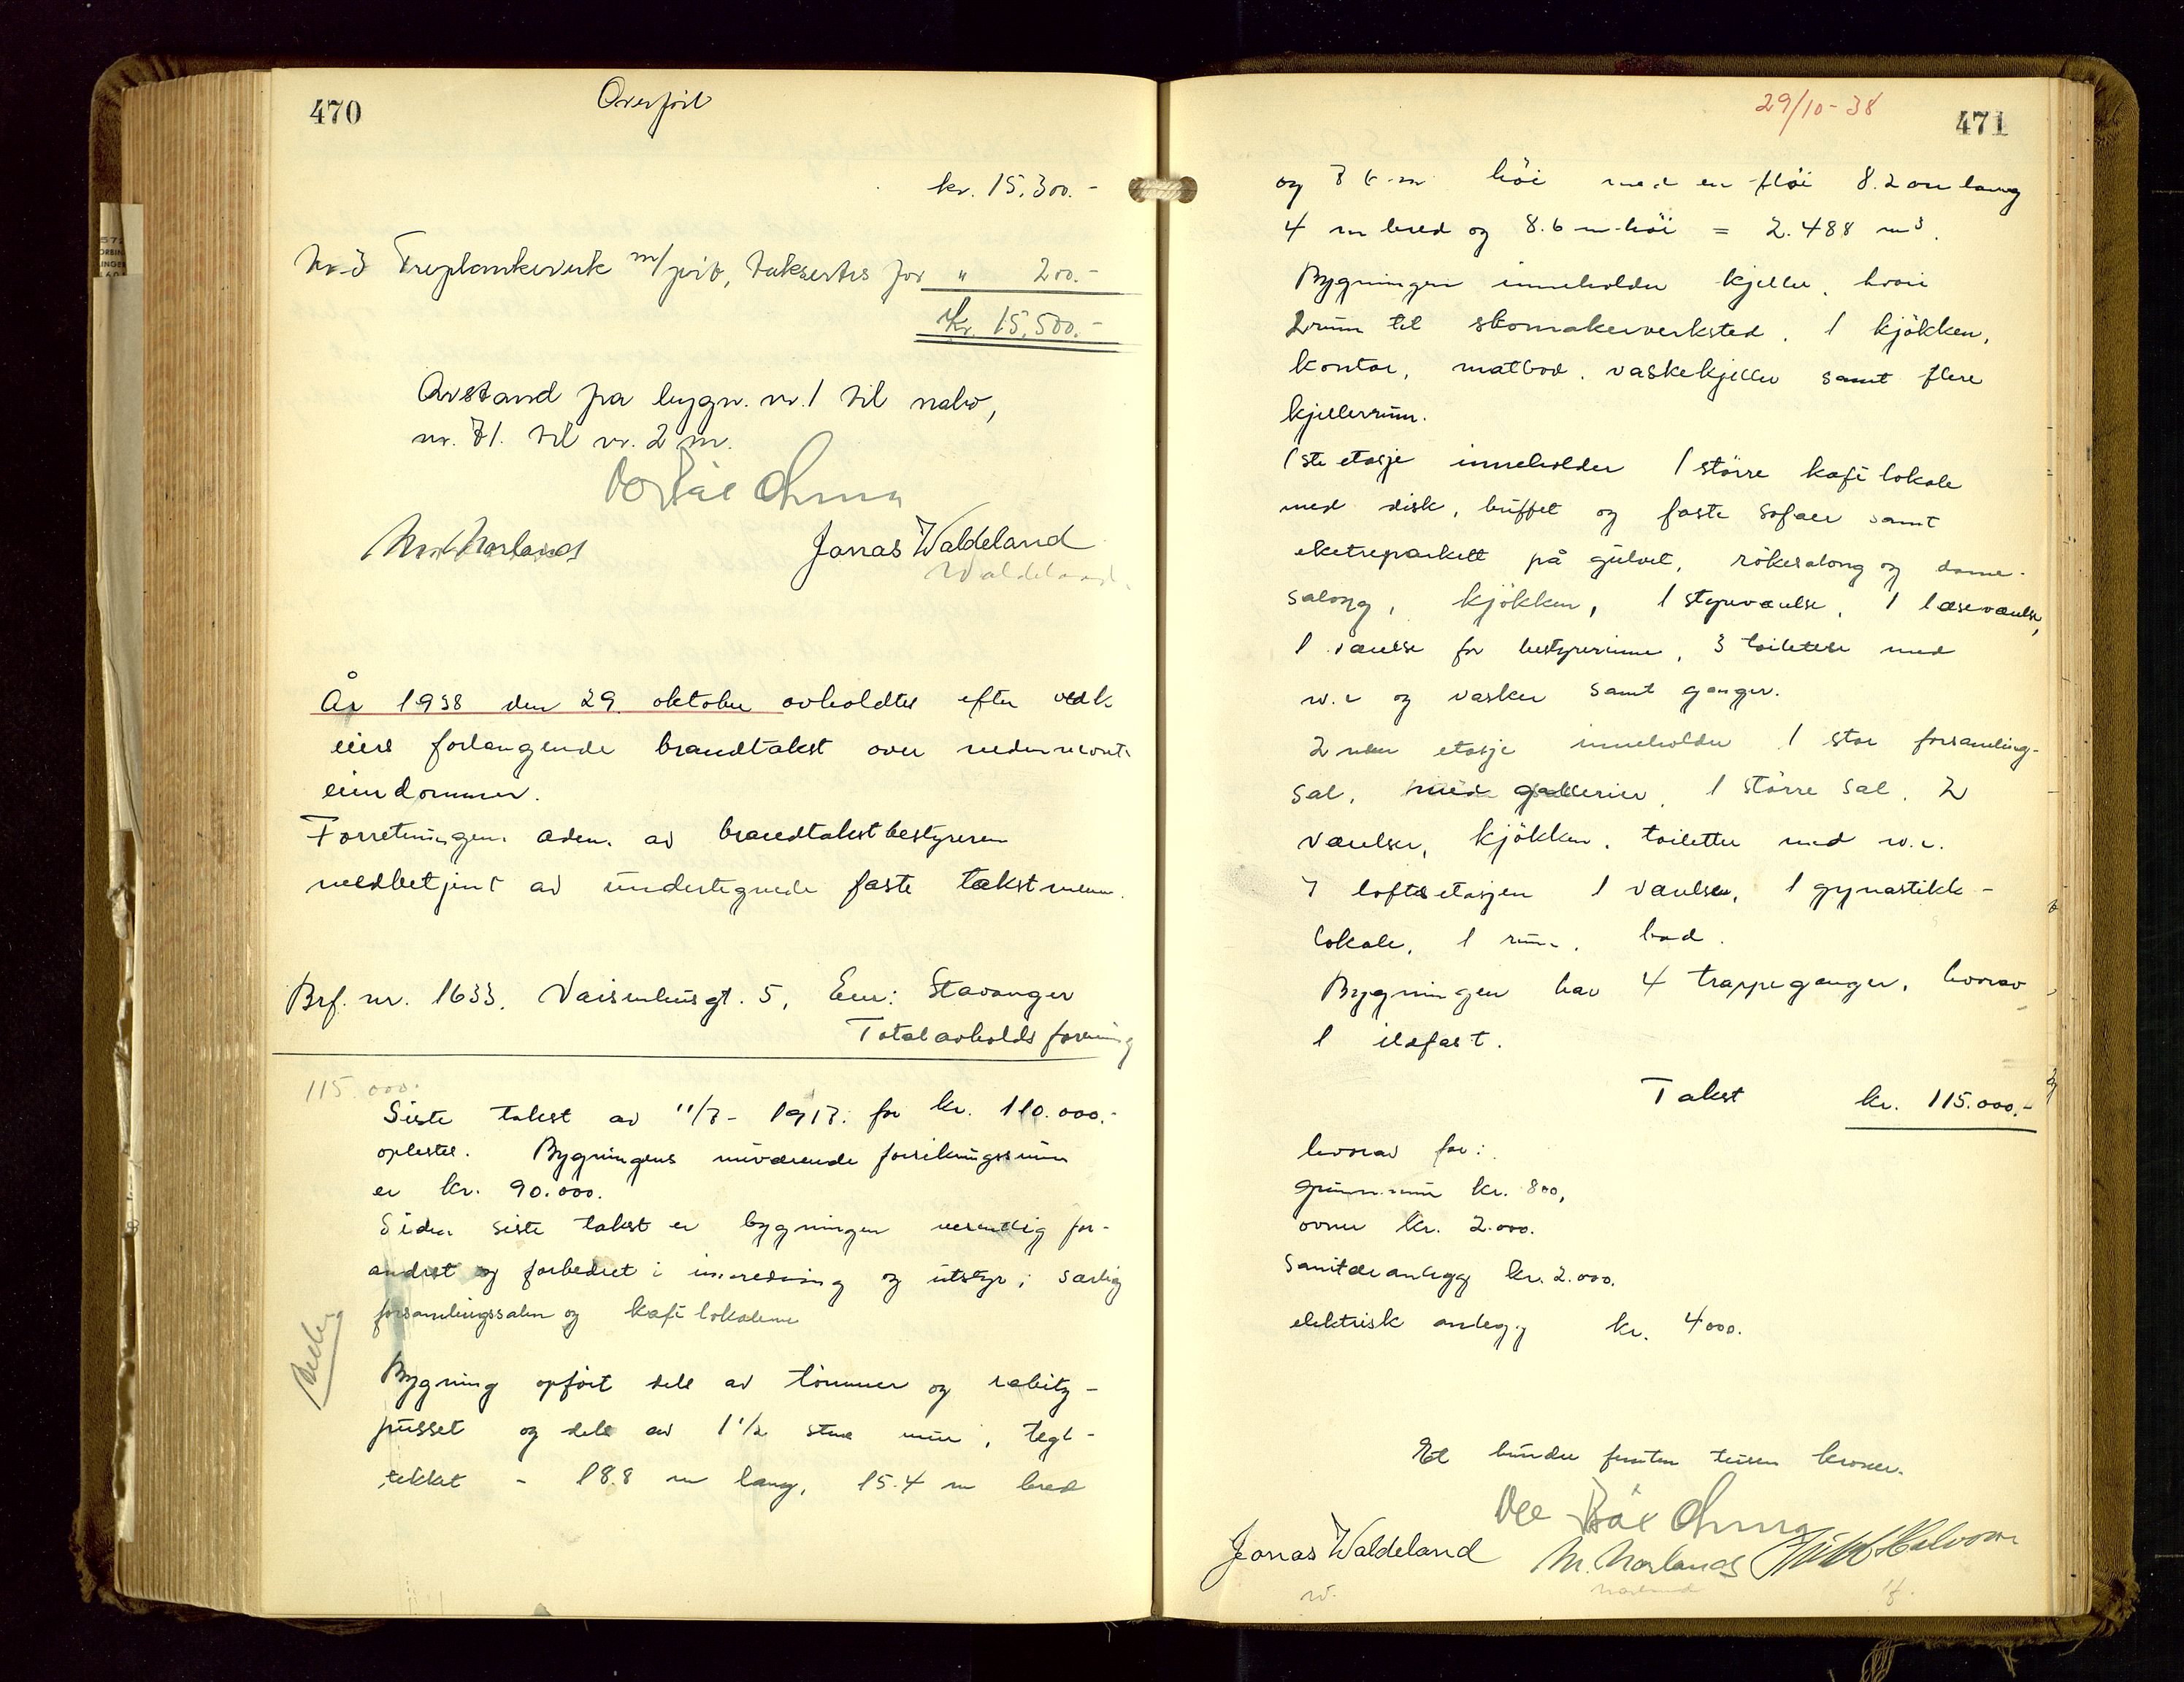 470
Overført
kr. 15,300.-
Nr. 3 Treplankeverk m/port, takseres for " 200.-
Kr. 15,500.-
Avstand fra bygn. nr. 1 til nabo,
nr. 71. til nr. 2 m.
Jonas Waldeland
Waldeland.
År 1938 den 29. oktober avholdtes efter vedk
eiers forlangende brandtakst over nedennevnte
eiendommer.
Forretningen adm. av brandtakstbestyreren
medbetjent av undertegnede faste takstmenn.
Brf. nr. 1633. Vaisenhusgt. 5, Eier: Stavanger
Totalavholdsforening
115.000.
Siste takst av 11/7- 1917. for kr. 110.000.-
oplestes. Bygningens nuværende forsikringssum
er kr. 90.000.
Siden siste takst er bygningen vesentlig for-
andret og forbedret i innredning og utstyr, særlig
forsamlingssalen og kafélokalene
Bygning opført dels av tømmer og rabitz-
pusset og dels av 1 1/2 stens mur, tegl-
tekket - 18.8 m lang, 15.4 m bred
29/10-38
471
og 7 6 m høi med en fløi 8.2 m lang
4 m bred og 8.6 m høi = 2.488 m3.
Bygningen inneholder kjeller, hvori
2 rum til skomakerverksted, 1 kjøkken,
kontor, matbod, vaskekjeller samt flere
kjellerrum.
1ste etasje inneholder 1 større kafé lokale
med disk, buffet og faste sofaer samt
eketreparkett på gulvet, røkesalong og dame-
salong, kjøkken, 1 styreværelse, 1 læseværelse,
1 værelse for bestyrerinne, 3 toiletter med
w.c og vasker samt ganger.
2nen etasje inneholder 1 stor forsamling-
sal, med gallerier, 1 større sal, 2
værelser, kjøkken, toiletter med w.c.
I loftsetasjen 1 værelse, 1 gynastikk-
lokale, 1 rum, bad.
Bygningen har 4 trappeganger, hvorav
1 ildfast.
Takst kr. 115.000.-
hvorav for:
grunnmur kr. 800,
ovner kr. 2.000.
Sanitæranlegg kr. 2.000.
elektrisk anlegg kr. 4000.
Et hundre femten tusen kroner.
Jonas Waldeland M. Norland Halvorsen
w.